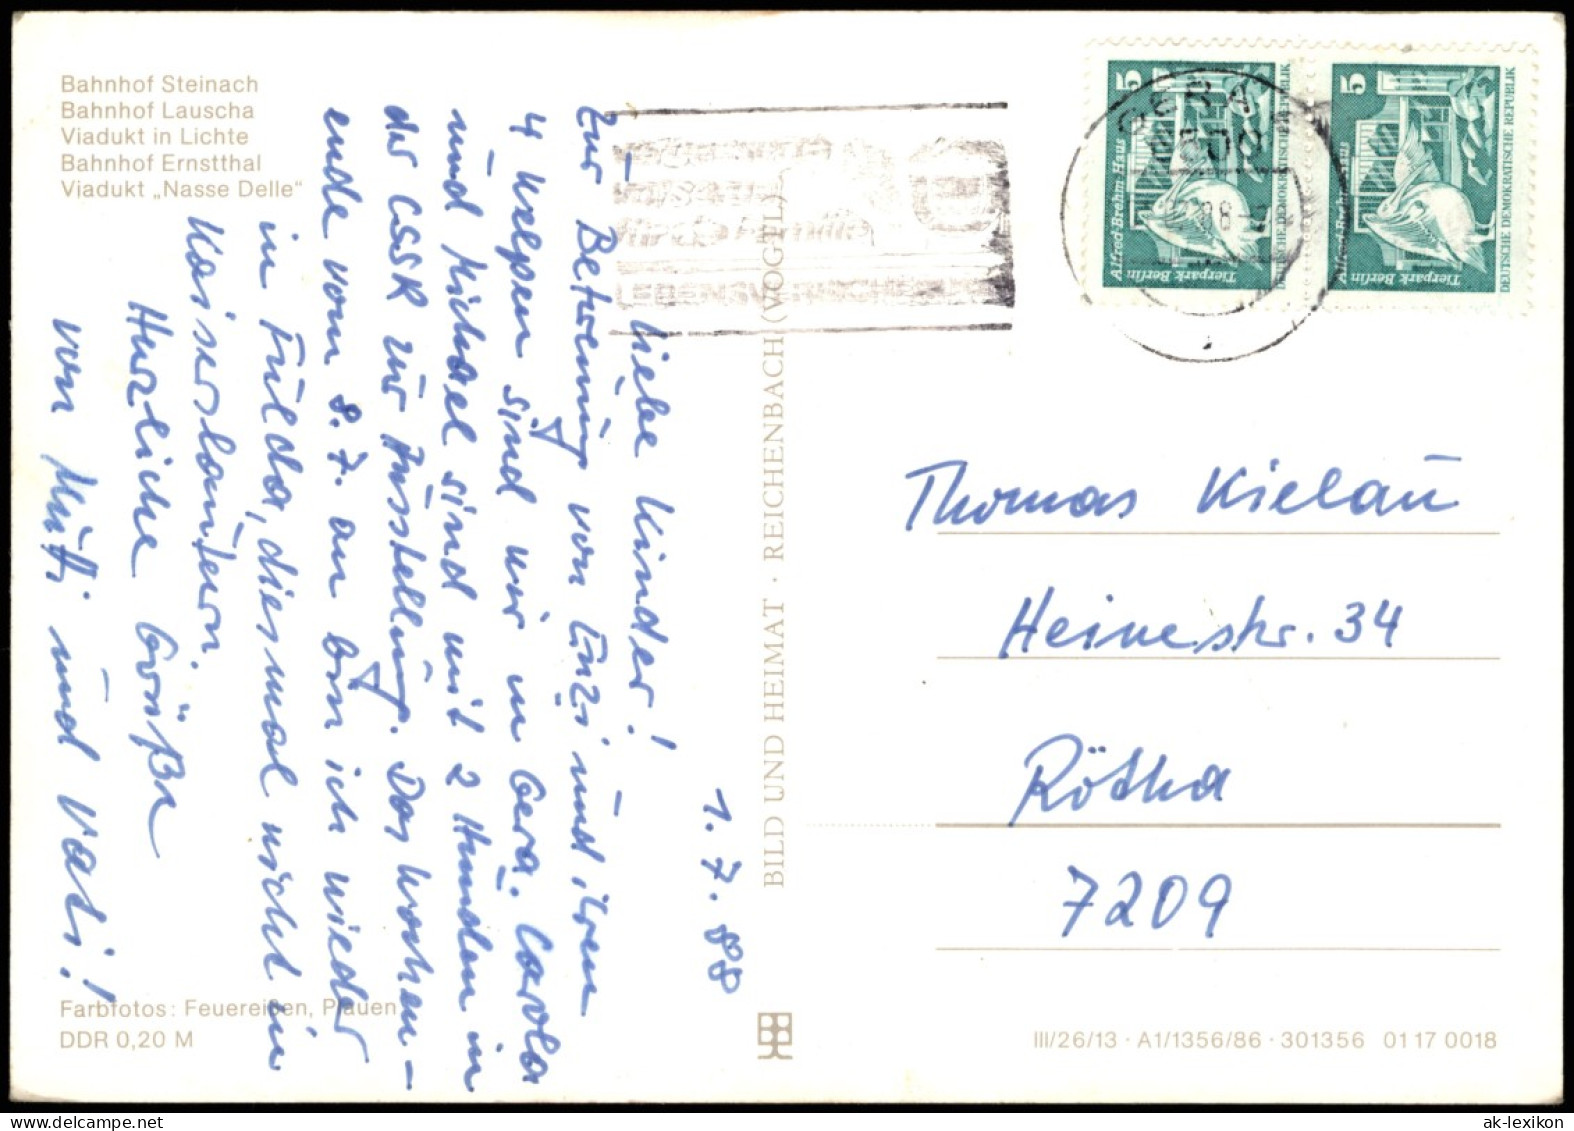 Bahnhof Steinach
Bahnhof Lauscha
Viadukt in Lichte
Bahnhof Ernstthal
Viadukt „Nasse Delle“
1.7.88
Liebe Kinder!
Zur Betreuung von Enzi und ihren
4 Welpen sind wir in Gera. Carola
und Michael sind mit 2 Hunden in
der CSSR zur Ausstellung. Das Wochen-
ende vom 8.7. an bin ich wieder
in Fulda, diesmal nicht in
Kaiserslautern.
Herzliche Grüße
von Mutti und Vati!
Farbfotos: Feuereißen, Plauen
DDR 0,20 M
BILD UND HEIMAT · REICHENBACH (VOGTL)
5
Alfred-Brehm-Haus
Tierpark Berlin
DEUTSCHE DEMOKRATISCHE REPUBLIK
5
Alfred-Brehm-Haus
Tierpark Berlin
DEUTSCHE DEMOKRATISCHE REPUBLIK
GERA
Thomas Kielau
Heinestr. 34
Rötha
7209
III/26/13 · A1/1356/86 · 301356 01 17 0018
ak-lexikon